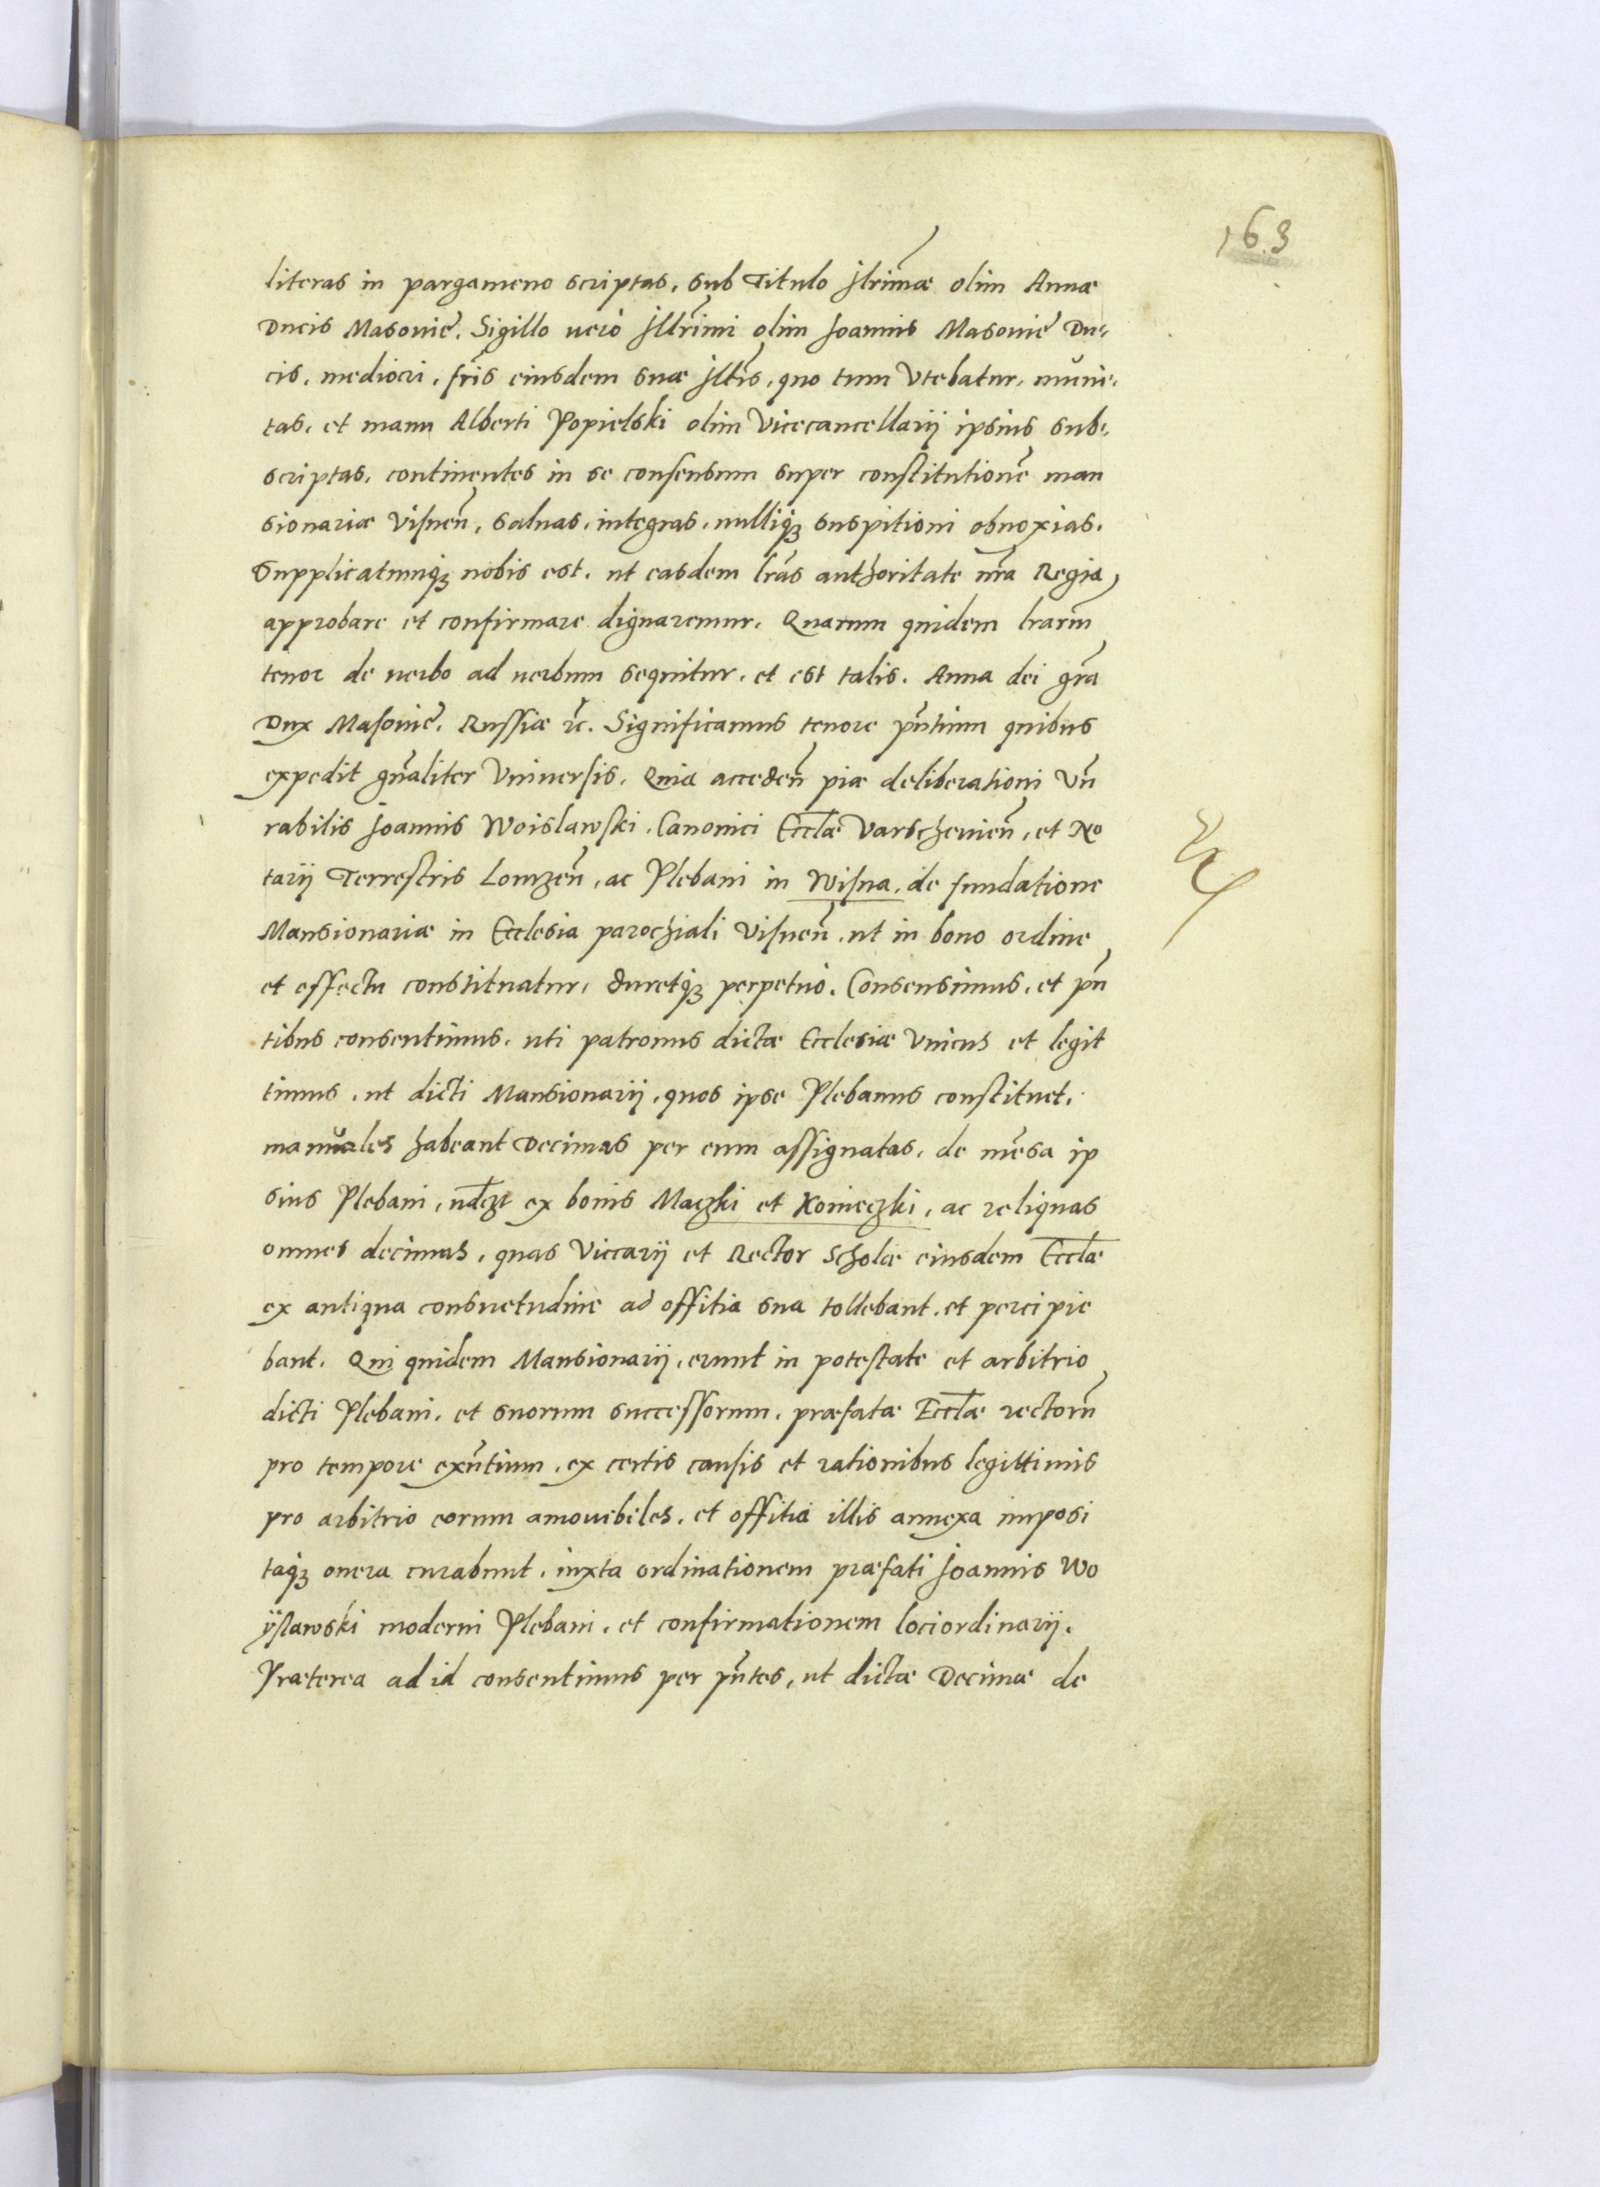 163
literas in pargameno scriptas, sub Titulo Jlrimæ olim Annæ
Ducis Masoniẽ. Sigillo uero Jllr̃imi olim Joannis Masoniẽ Du-
cis, mediocri, fr̃is eiusdem suæ Jllt̃is, quo tum Vtebatur, muni-
tas, et manu Alberti Popielski olim Vicecancellarij ipsius sub-
scriptas, continentes in se consensum super constitutionẽ man
sionariæ Visneñ, saluas, integras, nulliq3 suspitioni obnoxias.
Supplicatumq3 nobis est, ut easdem lr̃as authoritate nr̃a Regia
approbare et confirmare dignaremur. Quarum quidem lrarũ
tenor de uerbo ad uerbum sequitur, et est talis. Anna dei gr̃a
Dux Masouiẽ, Russiæ &c. Significamus tenore pñtium quibus
expedit gñaliter Vniuersis. Quia accedeñ piæ deliberationi Vñ
rabilis Joannis Woislawski, Canonici Ecclæ Varscheuieñ, et No
tarij Terrestris Lomzeñ, ac Plebani in Wisna, de fundatione
Mansionariæ in Ecclesia parochiali Visneñ, ut in bono ordine
et effectu constituatur, duretq3 perpetuo. Consensimus, et pñ
tibus consentimus, uti patronus dictæ Ecclesiæ Vnicus et legit
timus, ut dicti Mansionarij, quos ipse Plebanus constituet,
manuales habeant Decimas per eum assignatas, de mẽsa ip
sius Plebani, udczt ex bonis Maczki et Konieczki, ac reliquas
omnes decimas, quas Viccarij et Rector Scholæ eiusdem Ecclæ
ex antiqua consuetudine ad offitia sua tollebant, et percipie
bant. Qui quidem Mansionarij, erunt in potestate et arbitrio
dicti Plebani, et suorum successorum, præfatæ Ecclæ rectorũ
pro tempore exñtium, ex certis causis et rationibus legittimis
pro arbitrio eorum amouibiles, et offitia illis annexa imposi
taq3 onera curabunt, iuxta ordinationem præfati Joannis Wo
ÿslawski moderni Plebani, et confirmationem lociordinarij.
Præterea ad id consentimus per pñtes, ut dictæ Decimæ de